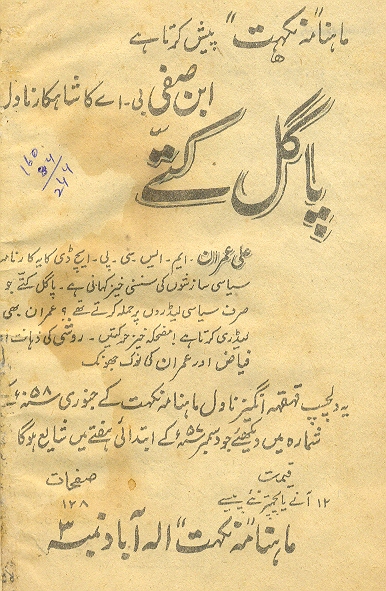 ماہنامہ "نکہت" پیش کرتا ہے
ابن صفی بی-اے کا شاہکار ناول
پاگل کتے
160
84
244
علی عمران - ایم - ایس - سی - پی - ایچ ڈی کا یہ کارنامہ
سیاسی سازشوں کی سنسنی خیز کہانی ہے - پاگل کتے جو
صرف سیاسی لیڈروں پر حملہ کرتے تھے؟ عمران بھی
لیڈری کرتا ہے! مضحکہ خیز حرکتیں - روشی کی ذہانت!
فیاض اور عمران کی نوک جھونک
یہ دلچسپ قہقہہ انگیز ناول ماہنامہ نکہت کے جنوری ۵۸ء کے
شمارہ میں دیکھئے جو دسمبر ۵۷ء کے ابتدائی ہفتے میں شایع ہوگا
قیمت
صفحات
۱۲ آنے یا پچھتر نئے پیسے
۱۲۸
ماہنامہ "نکہت" الہ آباد نمبر ۳